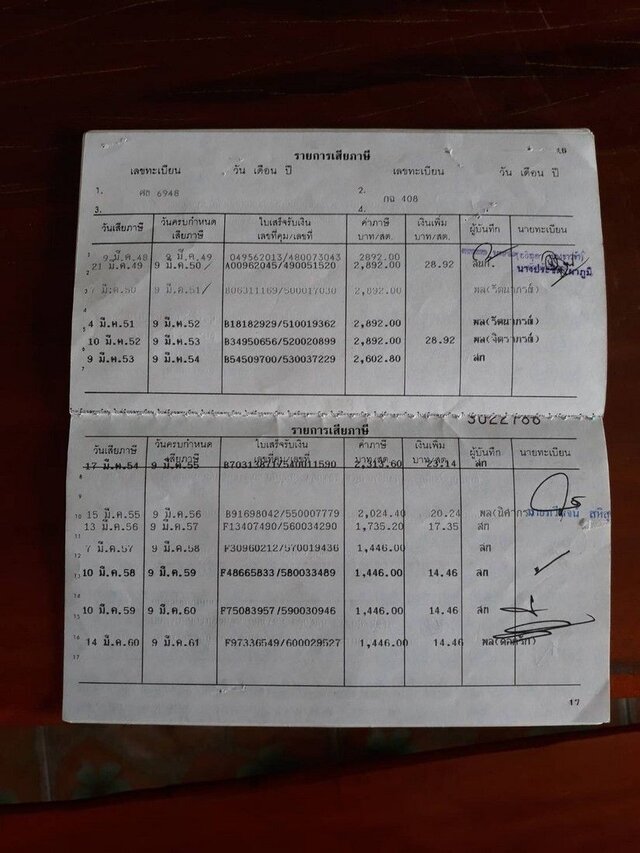 รายการเสียภาษี
18
เลขทะเบียน วัน เดือน ปี เลขทะเบียน วัน เดือน ปี
1. ศธ 6948 2. กฉ 408
3. 4.
วันเสียภาษี วันครบกำหนดเสียภาษี ใบเสร็จรับเงินเลขที่คุม/เลขที่ ค่าภาษีบาท/สต. เงินเพิ่มบาท/สต. ผู้บันทึก นายทะเบียน
9 มี.ค.48 9 มี.ค.49 049562013/480073043 2892.00
21 มี.ค.49 9 มี.ค.50 A00962045/490051520 2,892.00 28.92
7 มี.ค.50 9 มี.ค.51 B06311169/500017030 2,892.00 พล(รัตนาภรณ์)
4 มี.ค.51 9 มี.ค.52 B18182929/510019362 2,892.00 พล(รัตนาภรณ์)
10 มี.ค.52 9 มี.ค.53 B34950656/520020899 2,892.00 28.92 พล(จิตราภรณ์)
9 มี.ค.53 9 มี.ค.54 B54509700/530037229 2,602.80 สก
3022786
รายการเสียภาษี
วันเสียภาษี วันครบกำหนดเสียภาษี ใบเสร็จรับเงินเลขที่คุม/เลขที่ ค่าภาษีบาท/สต. เงินเพิ่มบาท/สต. ผู้บันทึก นายทะเบียน
17 มี.ค.54 9 มี.ค.55 B70313871/540011590 2,313.60 23.14 สก
15 มี.ค.55 9 มี.ค.56 B91698042/550007779 2,024.40 20.24
13 มี.ค.56 9 มี.ค.57 F13407490/560034290 1,735.20 17.35 สก
7 มี.ค.57 9 มี.ค.58 F30960212/570019436 1,446.00 สก
10 มี.ค.58 9 มี.ค.59 F48665833/580033489 1,446.00 14.46 สก
10 มี.ค.59 9 มี.ค.60 F75083957/590030946 1,446.00 14.46 สก
14 มี.ค.60 9 มี.ค.61 F97336549/600029527 1,446.00 14.46
17